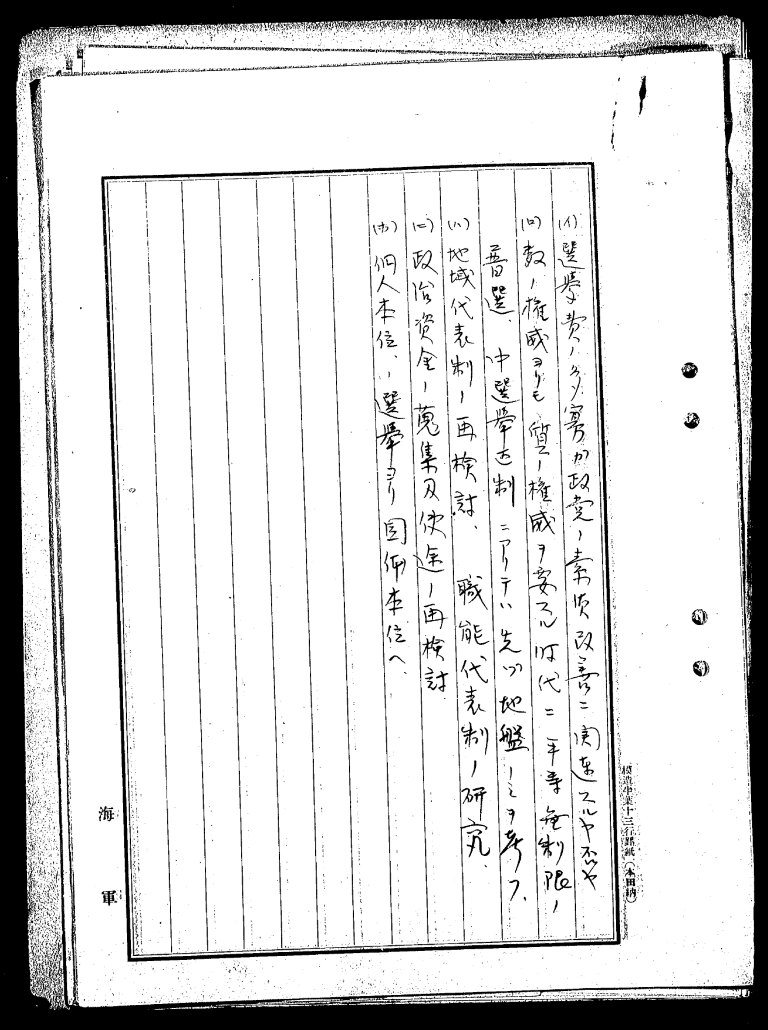 (イ) 選挙費ノ多寡が政党ノ素質改善ニ関連スルヤ否ヤ
(ロ) 数ノ権威ヨリモ質ノ権威ヲ要スル時代ニ平等無制限ノ
普選、中選挙区制ニアリテハ先ヅ地盤ノミヲ考フ、
(ハ) 地域代表制ノ再検討、職能代表制ノ研究、
(ニ) 政治資金ノ蒐集及使途ノ再検討
(ホ) 個人本位ノ選挙ヨリ団体本位ヘ、
海軍
模造半葉十三行罫紙(本田納)